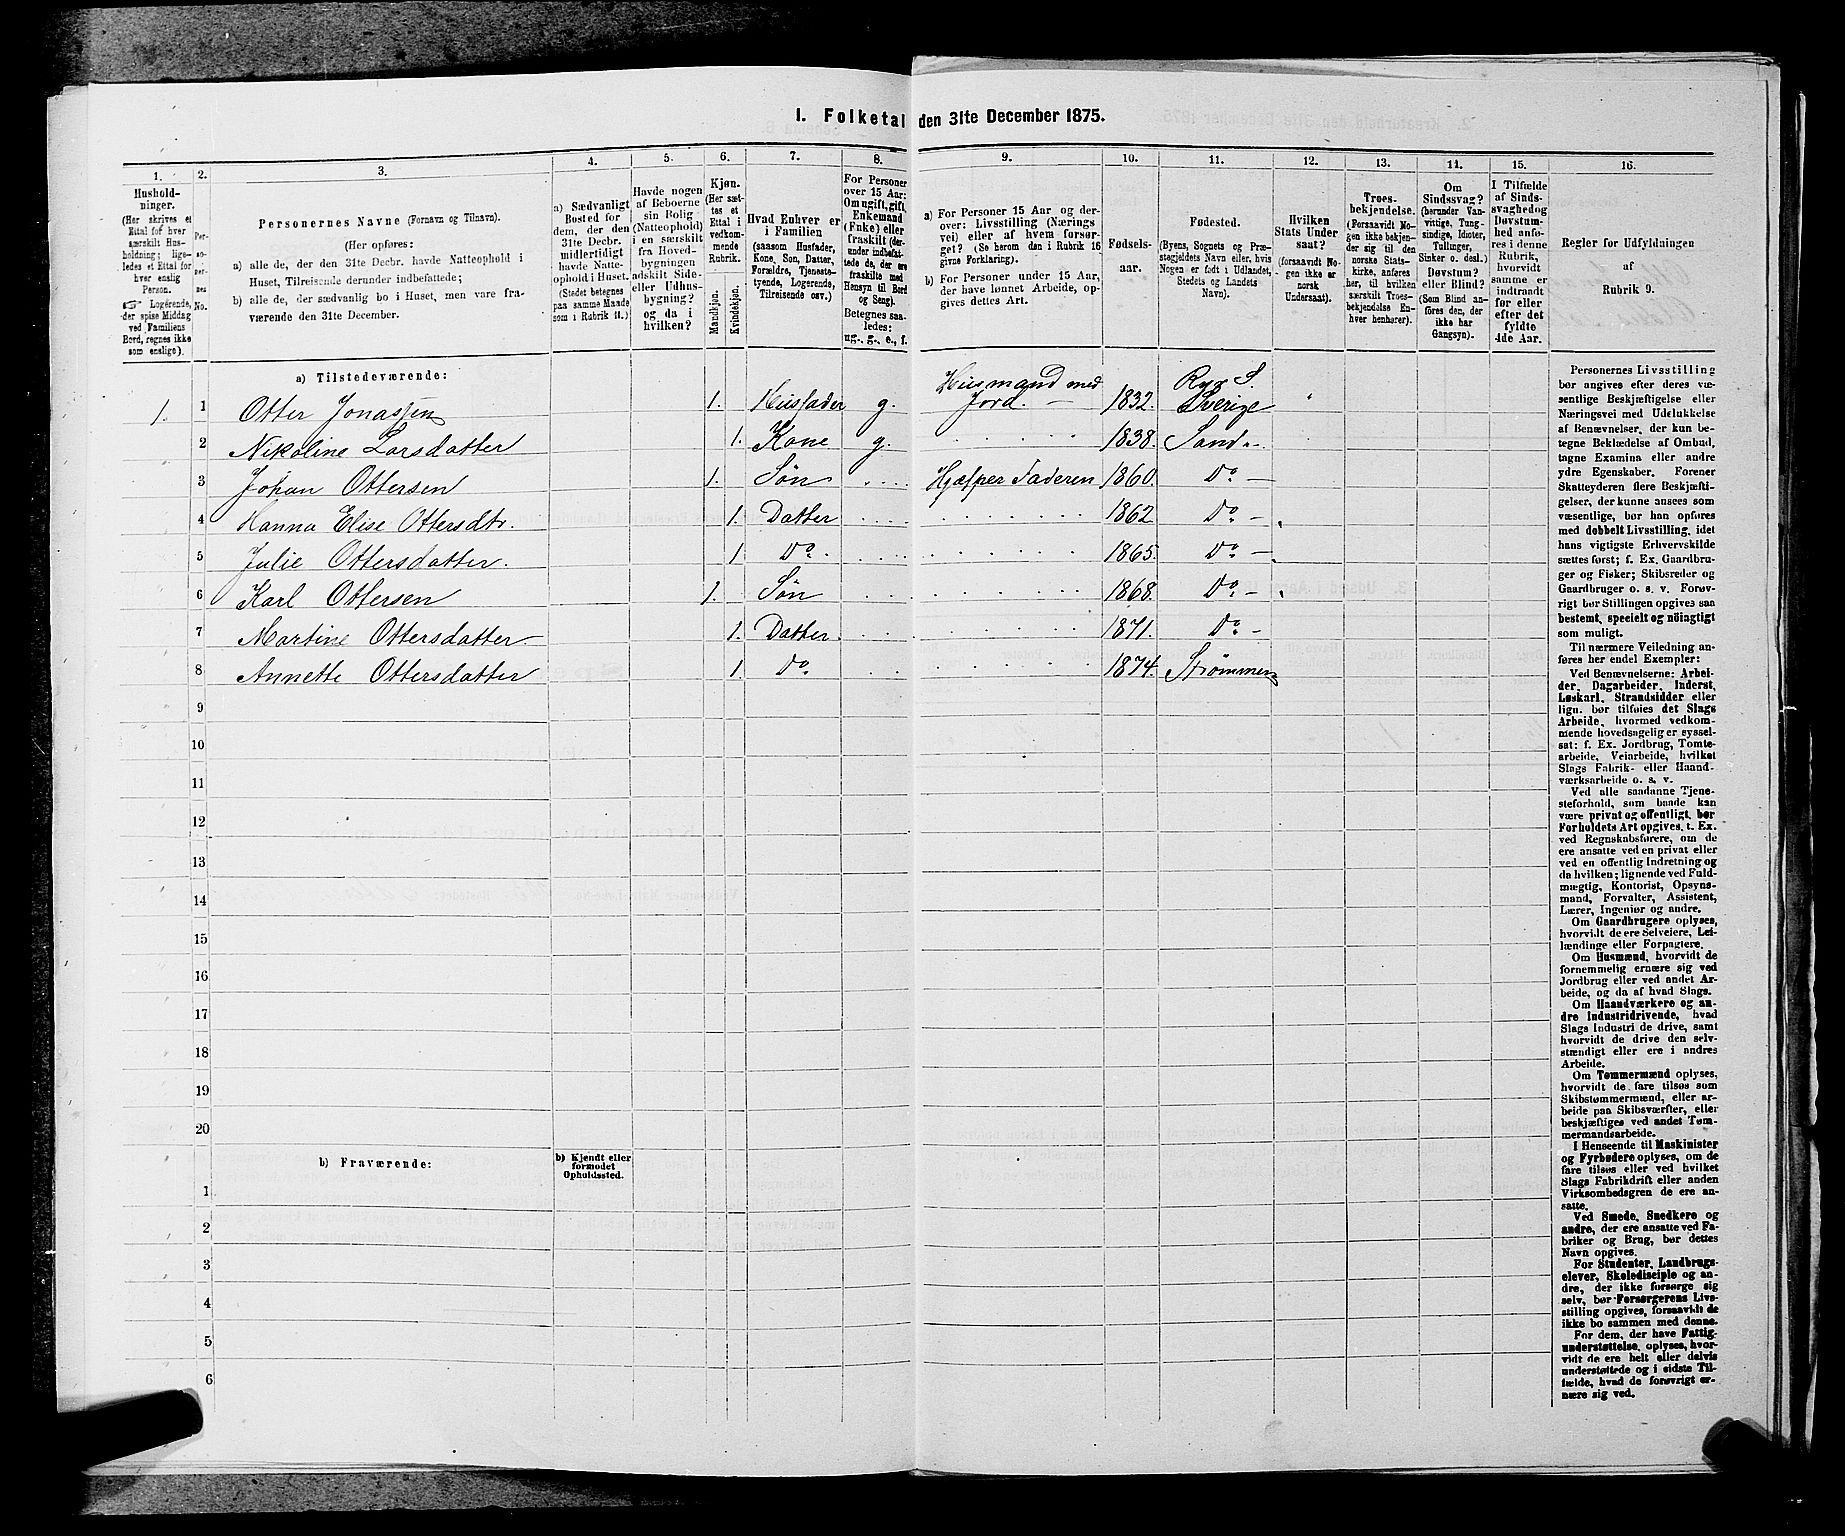 1. Folketal den 31te December 1875.
1. 2. 3. 4. 5. 6. 7. 8. 9. 10. 11. 12. 13. 14. 15. 16.
Hushold-
ninger.
(Her skrives et
Ettal for hver
særskilt Hus-
holdning; lige-
ledes et Ettal for
hver enslig
Person.
☞ Logerende,
der spise Middag
ved Familiens
Bord, regnes ikke
som enslige).
Per-
so-
ner-
nes
No.
Personernes Navne (Fornavn og Tilnavn).
(Her opføres:
a) alle de, der den 31te Decbr. havde Natteophold i
Huset, Tilreisende derunder indbefattede;
b) alle de, der sædvanlig bo i Huset, men vare fra-
værende den 31te December.
a) Sædvanligt
Bosted for
dem, der den
31te Decbr.
midlertidigt
havde Natte-
ophold i Huset.
(Stedet betegnes
paa samme Maade
som i Rubrik 11.)
Havde nogen
af Beboerne
sin Bolig
(Natteophold)
i en særskilt
fra Hoved-
bygningen
adskilt Side-
eller Udhus-
bygning?
og da i
hvilken?
Kjøn.
(Her sæt-
tes et
Ettal i
vedkom-
mende
Rubrik.
Mandkjøn.
Kvindekjøn.
Hvad Enhver er
i Familien
(saasom Husfader,
Kone, Søn, Datter,
Forældre, Tjeneste-
tyende, Logerende,
Tilreisende osv.)
For Personer
over 15 Aar:
Om ugift, gift,
Enkemand
(Enke) eller
fraskilt (der-
under indbefat-
tede de, der ere
fraskilte med
Hensyn til Bord
og Seng).
Betegnes saa-
ledes:
ug., g., e., f.
a) For Personer 15 Aar og der-
over: Livsstilling (Nærings
vei) eller af hvem forsør-
get? (Se herom den i Rubrik 16
givne Forklaring).
b) For Personer under 15 Aar,
der have lønnet Arbeide, op-
gives dettes Art.
Fødsels-
aar.
Fødested.
(Byens, Sognets og Præ-
stegjeldets Navn eller, hvis
Nogen er født i Udlandet,
Stedets og Landets
Navn).
Hvilken
Stats Under
saat?
(forsaavidt No-
gen ikke er
norsk
Undersaat).
Troes-
bekjendelse.
(Forsaavidt No-
gen ikke bekjen-
der sig til den
norske Stats-
kirke, anføres
her, til hvilken
særskilt Troes-
bekjendelse En-
hver henhører).
Om
Sindssvag?
(herunder Van-
vittige, Tung-
sindige, Idioter,
Tullinger,
Sinker o. desl.)
Døvstum?
eller Blind?
(Som Blind an-
føres den, der
ikke har
Gangsyn).
I Tilfælde
af Sinds-
svaghed og
Døvstum-
hed anfø-
res i denne
Rubrik,
hvorvidt
samme er
indtraadt
før eller
efter det
fyldte
4de Aar.
Regler for Udfyldningen
af
Rubrik 9.
a) Tilstedeværende:
1. 1 Otter Jonassen 1. Husfader g. Husmand med Jord. — 1832. Sverige
2 Nikoline Larsdatter 1. Kone g. 1838. Sand. -
3 Johan Ottersen 1. Søn Hjælper Faderen 1860. Do. —
4 Hanna Elise Ottersdtr. 1. Datter 1862 Do. —
5 Julie Ottersdatter. 1 Do. 1865. Do. —
6 Karl Ottersen 1. Søn 1868. Do. —
7 Martine Ottersdatter 1. Datter. 1871. Do. —
8 Annette Ottersdatter 1. Do 1874. Strømmen
9
10
11
12
13
14
15
16
17
18
19
20
b) Fraværende:
b) Kjendt eller
formodet
Opholdssted.
1
2
3
4
5
6
Personernes Livsstilling
bør angives efter deres væ-
sentlige Beskjæftigelse eller
Næringsvei med Udelukkelse
af Benævnelser, der kun be-
tegne Beklædelse af Ombud,
tagne Examina eller andre
ydre Egenskaber. Forener
Skatteyderen flere Beskjæfti-
gelser, der kunne ansees som
væsentlige, bør han opføres
med dobbelt Livsstilling, idet
hans vigtigste Erhvervskilde
sættes først; f. Ex. Gaardbru-
ger og Fisker; Skibsreder og
Gaardbruger o. s. v. Forøv-
rigt bør Stillingen opgives saa
bestemt, specielt og nöiagtigt
som muligt.
Til nærmere Veiledning an-
føres her endel Exempler:
Ved Benævnelserne: Arbei-
der, Dagarbeider, Inderst,
Løskarl, Strandsidder eller
lign. bør tilføies det Slags
Arbeide, hvormed vedkom-
mende hovedsagelig er syssel-
sat: f. Ex. Jordbrug, Tomte-
arbeide, Veiarbeide, hvilket
Slags Fabrik- eller Haand-
værksarbeide o. s. v.
Ved alle saadanne Tjene-
steforhold, som baade kan
være privat og offentligt, bør
Forholdets Art opgives, t. Ex.
ved Regnskabsførere, om de
ere ansatte ved en privat eller
ved en offentlig Indretning og
da hvilken; lignende ved Fuld-
mægtig, Kontorist, Opsyns-
mand, Forvalter, Assistent,
Lærer, Ingeniør og andre.
Om Gaardbrugere oplyses,
hvorvidt de ere Selveiere, Lei-
lændinge eller Forpagtere.
Om Husmænd, hvorvidt de
fornemmelig ernære sig ved
Jordbrug eller ved andet Ar-
beide, og da af hvad Slags.
Om Haandværkere og an-
dre Industridrivende, hvad
Slags Industri de drive, samt
hvorvidt de drive den selv-
stændigt eller ere i andres
Arbeide.
Om Tømmermænd oplyses,
hvorvidt de fare tilsøs som
Skibstømmermænd, eller ar-
beide paa Skibsværfter, eller
beskjæftiges ved andet Tøm-
mermandsarbeide.
I Henseende til Maskinister
og Fyrbødere oplyses, om de
fare tilsøs eller ved hvilket
Slags Fabrikdrift eller anden
Virksombedsgren de ere an-
satte.
Ved Smede, Snedkere og
andre, der ere ansatte ved Fa-
briker og Brug, bør dettes
Navn opgives.
For Studenter, Landbrugs-
elever, Skoledisciple og an-
dre, der ikke forsørge sig
selv, bør Forsørgerens Livs-
stilling opgives, forsaavidt de
ikke bo sammen med denne.
For dem, der have Fattig-
understøttelse, oplyses, hvor-
vidt de ere helt eller delvis
understøttede og i sidste Til-
fælde, hvad de forøvrigt er-
nære sig ved.